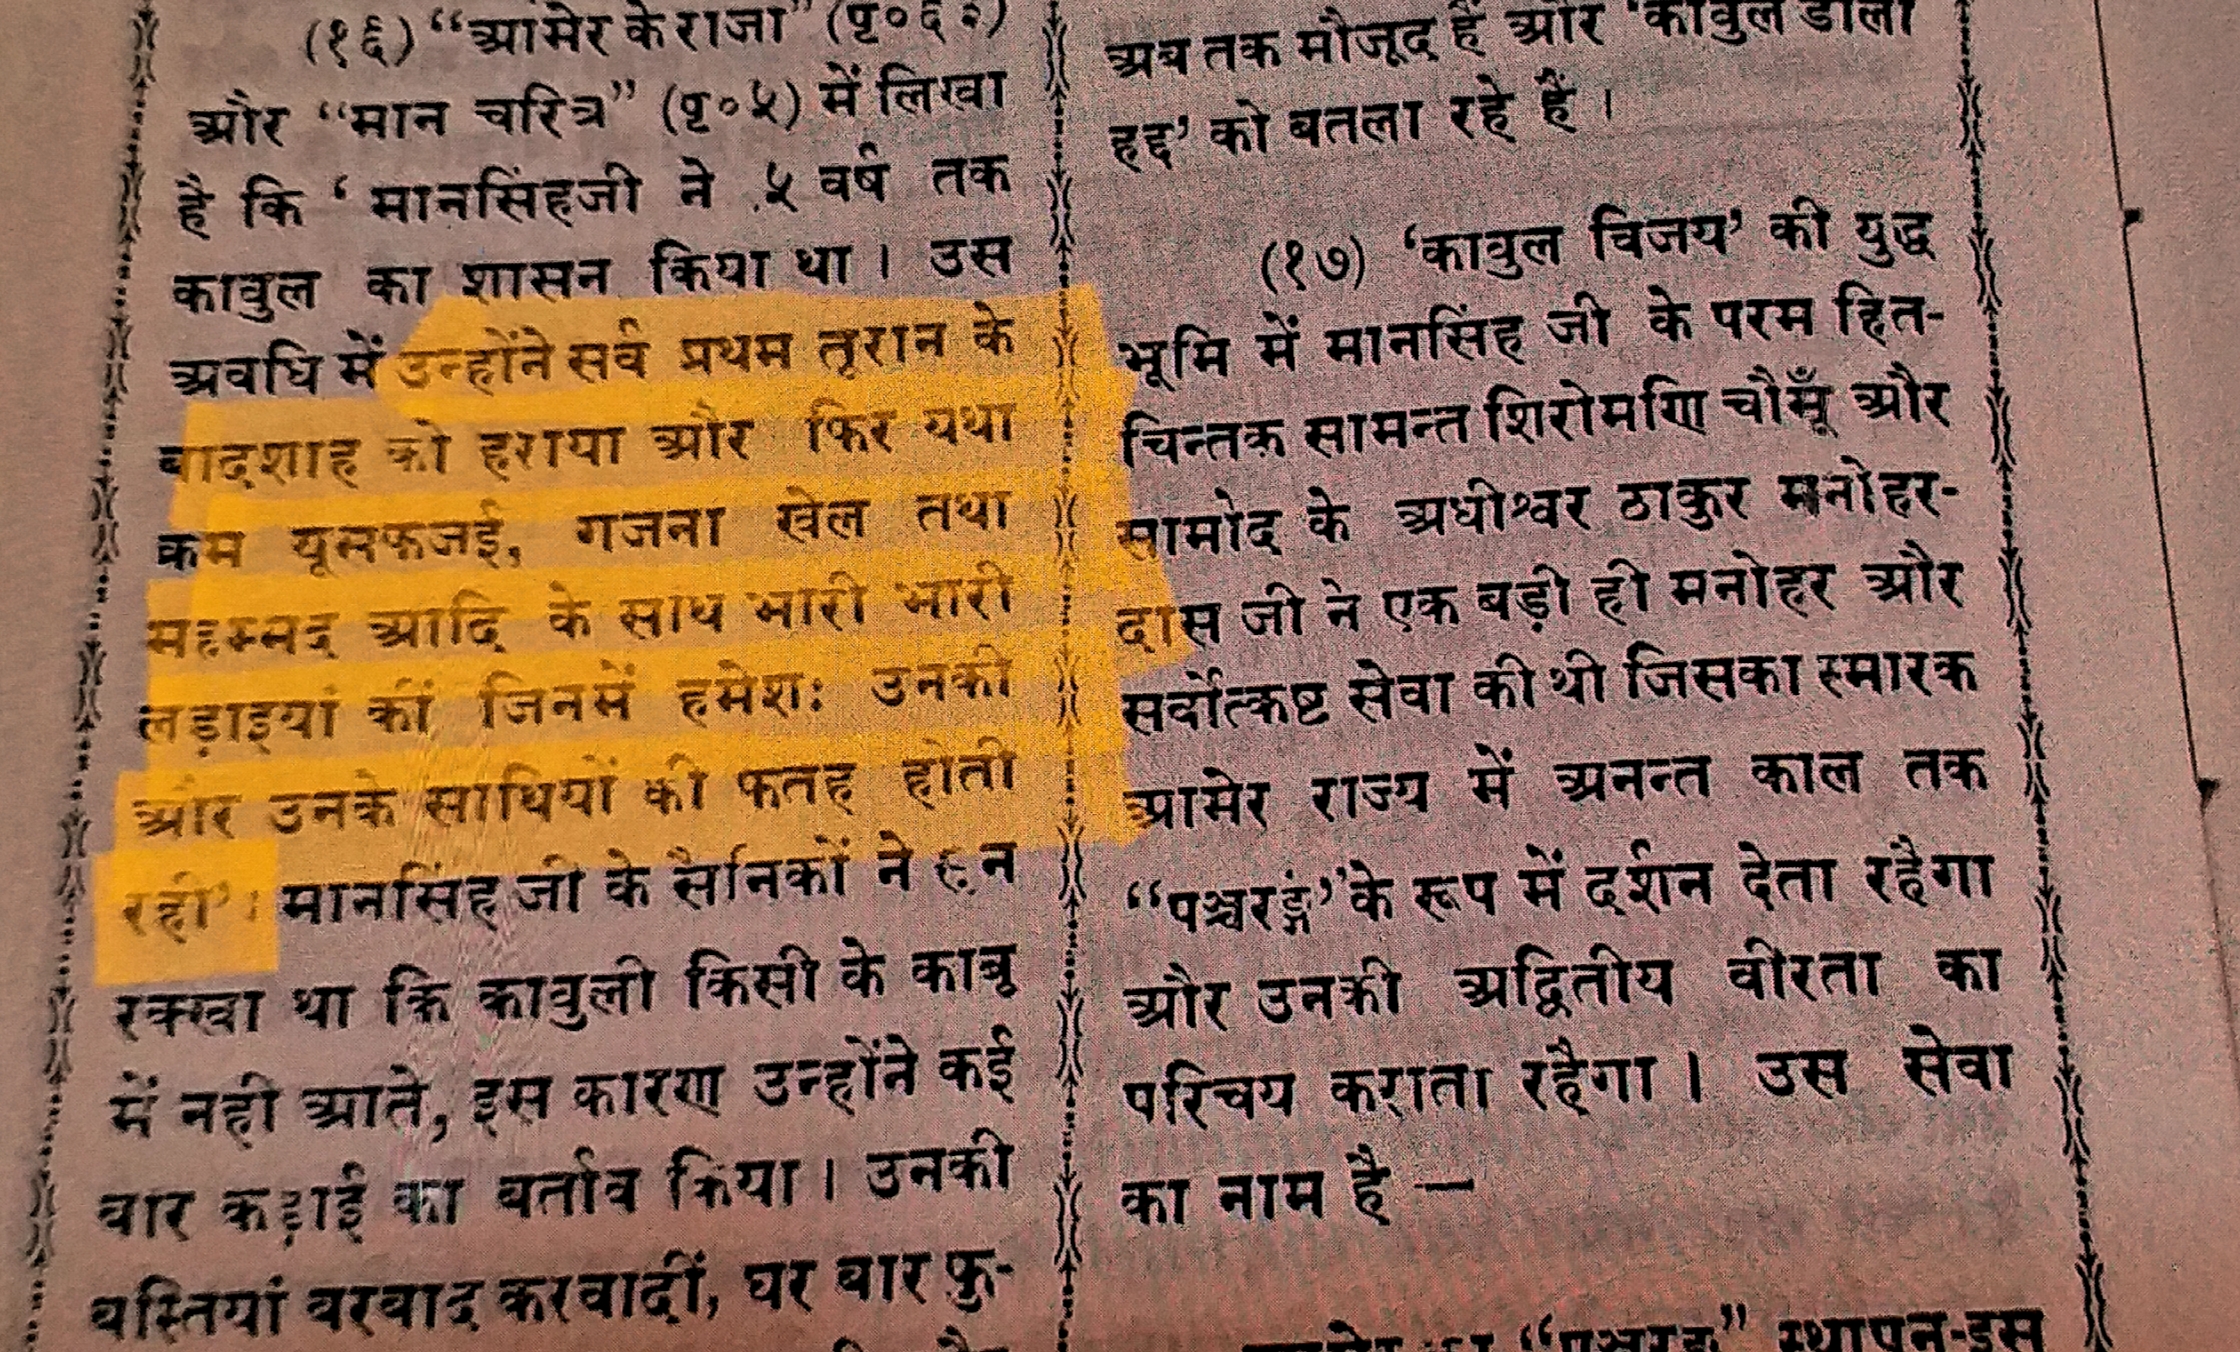 (१६) “आमेर के राजा” (पृ०६२)
और “मान चरित्र” (पृ०५) में लिखा
है कि ‘ मानसिंहजी ने ५ वर्ष तक
कावुल का शासन किया था । उस
अवधि में उन्होंने सर्व प्रथम तूरान के
बादशाह को हराया और फिर यथा
क्रम यूसफजई, गजना खेल तथा
महम्मद आदि के साथ भारी भारी
लड़ाइयां कीं जिनमें हमेशः उनकी
और उनके साथियों की फतह होती
रही’ । मानसिंह जी के सैनिकों ने
रक्खा था कि कावुली किसी के काबू
में नही आते, इस कारण उन्होंने कई
वार कड़ाई का बर्ताव किया । उनकी
वस्तियां वरवाद करवादीं, घर वार फु-
अब तक मौजूद हैं और ‘कावुल डोली
हद्द’ को बतला रहे हैं ।
(१७) ‘कावुल विजय’ की युद्ध
भूमि में मानसिंह जी के परम हित-
चिन्तक सामन्त शिरोमणि चौमूँ और
सामोद के अधीश्वर ठाकुर मनोहर-
दास जी ने एक बड़ी ही मनोहर और
सर्वोत्कष्ट सेवा की थी जिसका स्मारक
आमेर राज्य में अनन्त काल तक
“पञ्चरङ्ग” के रूप में दर्शन देता रहैगा
और उनकी अद्वितीय वीरता का
परिचय कराता रहैगा । उस सेवा
का नाम है —
“पञ्चरङ्ग” स्थापन-इस